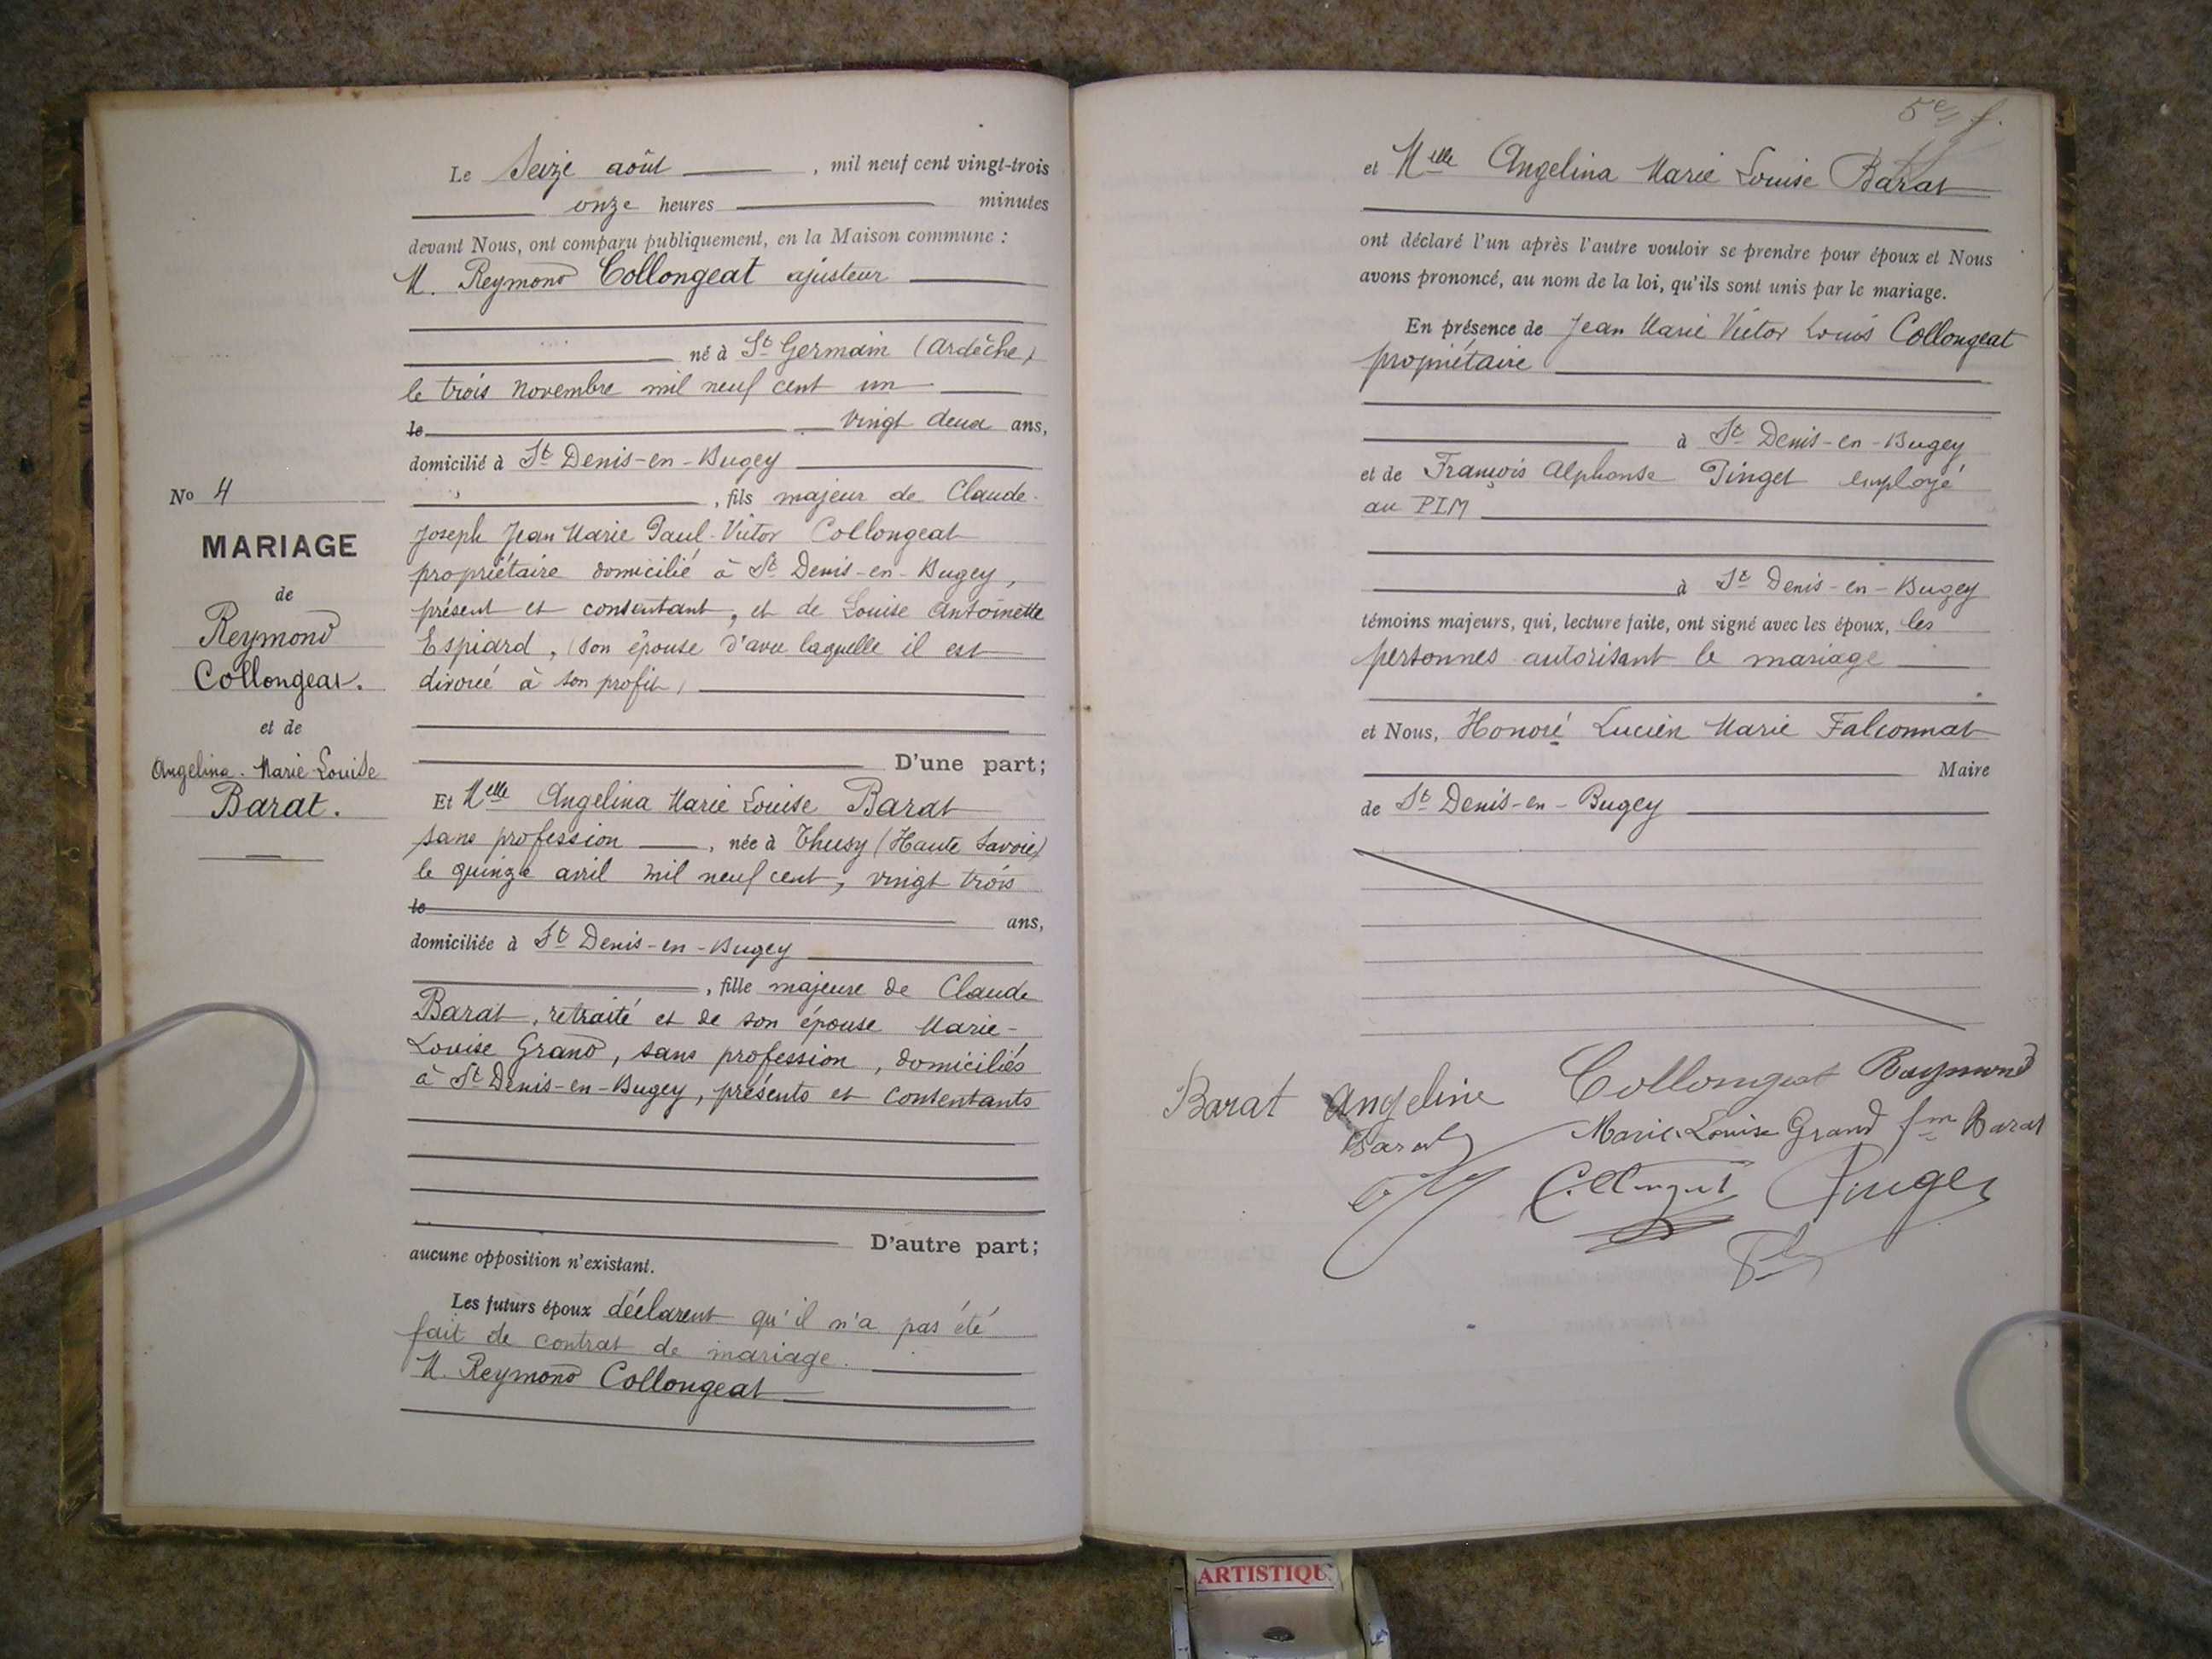 Le Seize août , mil neuf cent vingt-trois
onze heures minutes
devant Nous, ont comparu publiquement, en la Maison commune :
M. Reymond Collongeat ajusteur
né à St Germain (Ardèche)
le trois novembre mil neuf cent un
le vingt deux ans,
domicilié à St Denis-en-Bugey
, fils majeur de Claude
Joseph Jean Marie Paul-Victor Collongeat
propriétaire domicilié à St Denis-en-Bugey,
présent et consentant, et de Louise Antoinette
Espiard, (son épouse d'avec laquelle il est
divorcé à son profit)
D'une part;
No 4
MARIAGE
de
Reymond
Collongeat.
et de
Angelina-Marie-Louise
Barat.
Et Melle Angelina Marie Louise Barat
sans profession , née à Thusy (Haute Savoie)
le quinze avril mil neuf cent, vingt trois
le ans,
domiciliée à St Denis-en-Bugey
, fille majeure de Claude
Barat, retraité et de son épouse Marie-
Louise Grand, sans profession, domiciliés
à St Denis-en-Bugey, présents et consentants
D'autre part;
aucune opposition n'existant.
Les futurs époux déclarent qu'il n'a pas été
fait de contrat de mariage.
M. Reymond Collongeat
5e f.
et Melle Angelina Marie Louise Barat
ont déclaré l'un après l'autre vouloir se prendre pour époux et Nous
avons prononcé, au nom de la loi, qu'ils sont unis par le mariage.
En présence de Jean Marie Victor Louis Collongeat
propriétaire
à St Denis-en-Bugey
et de François Alphonse Pinget employé
au PLM
à St Denis-en-Bugey
témoins majeurs, qui, lecture faite, ont signé avec les époux, les
personnes autorisant le mariage
et Nous, Honoré Lucien Marie Falconnat
Maire
de St Denis-en-Bugey
Collongeat Raymond
Barat Angeline
Marie-Louise Grand fm Barat
Barat
Collongeat Pinget
ARTISTIQU